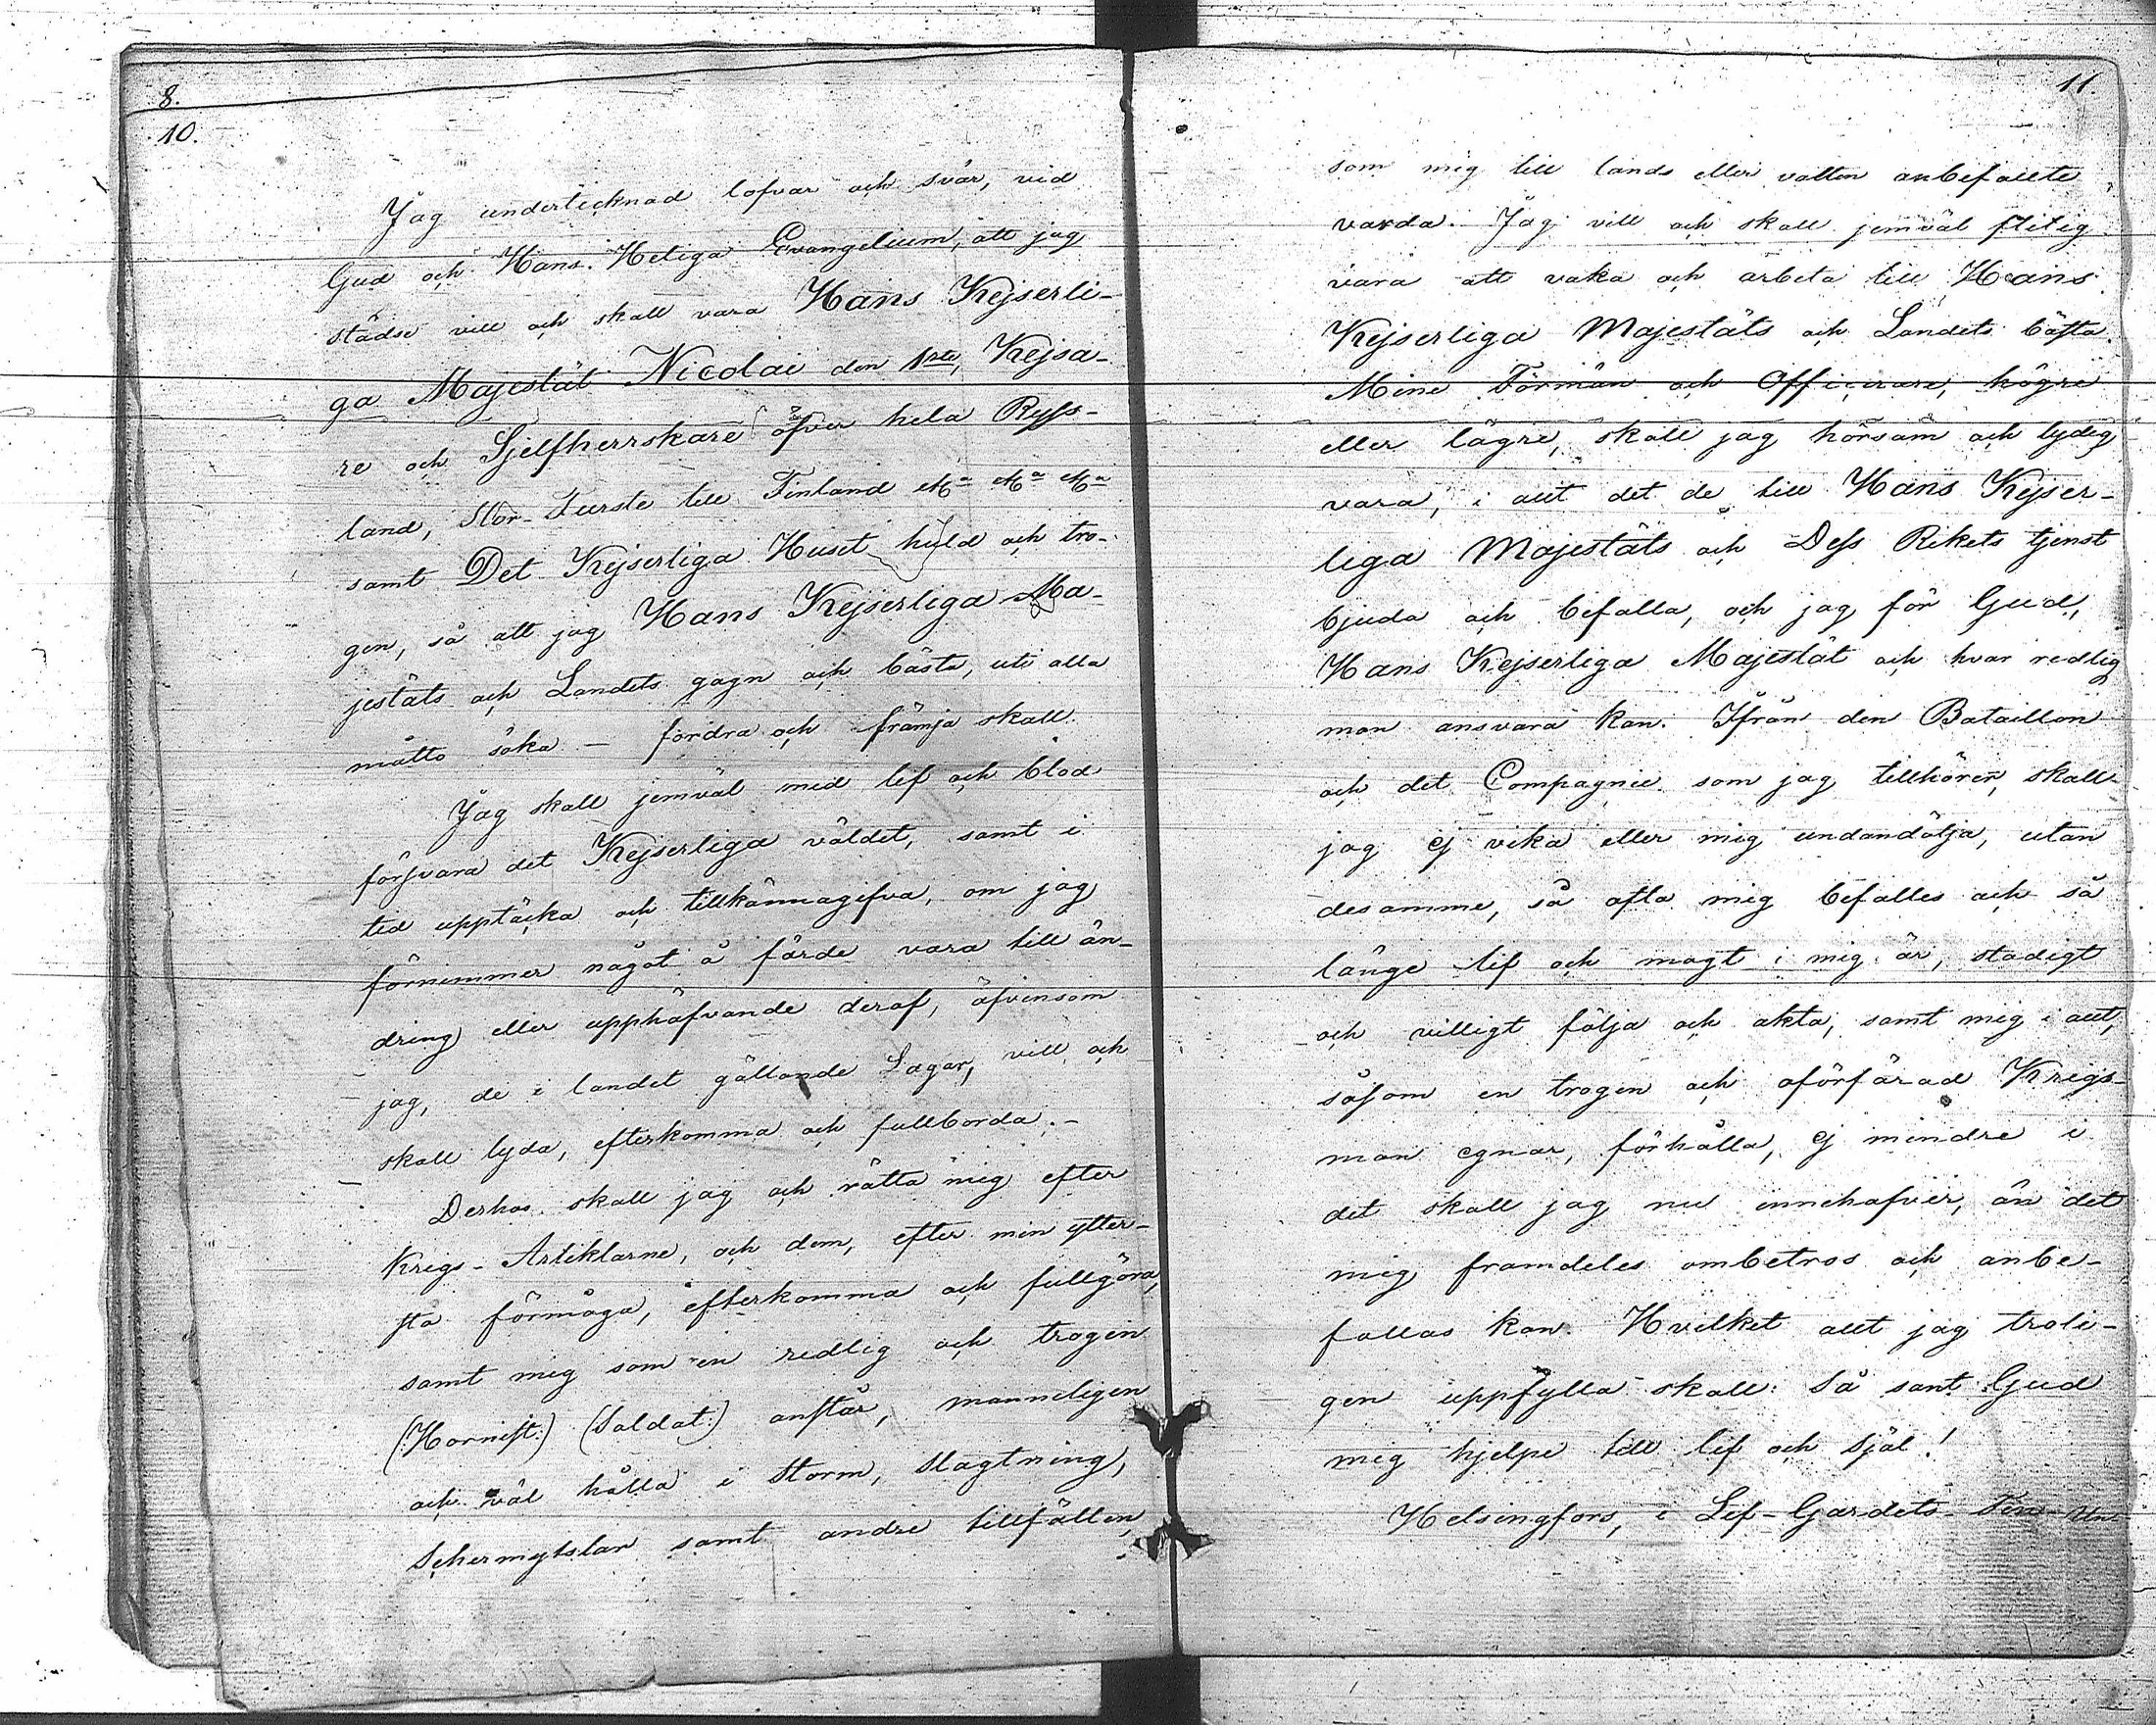 8.
10.
Jag undertecknad lofvar och svär, vid
Gud och Hans Heliga Evangelium, att jag
städse vill och skall vara Hans Kejserli-
ga Majestät Nicolai den 1ste, Kejsa-
re och Sjelfherrskare öfver hela Ryss-
land, Stor-Furste till Finland &c &c &c
samt Det Kejserliga Huset huld och tro-
gen, så att jag Hans Kejserliga Ma-
jestäts och Landets gagn och bästa, uti alla
måtto söka – fordra och främja skall.
Jag skall jemväl med lif och blod
försvara det Kejserliga väldet, samt i
tid upptäcka och tillkännagifva, om jag
förnimmer något å färde vara till än-
dring eller upphäfvande deraf, äfvensom
jag, de i landet gällande Lagar, vill och
skall lyda, efterkomma och fullborda. –
Derhos skall jag och rätta mig efter
Krigs-Artiklarne, och dem, efter min ytter-
sta förmåga, efterkomma och fullgöra,
samt mig som en redlig och trogen
(:Hornist:) (:Soldat:) anstår, manneligen
och väl hålla i Storm, Slagtning,
Schermytslar samt andre tillfällen,
11.
som mig till lands eller vatten anbefallte
varda. Jag vill och skall jemväl flitig
vara att vaka och arbeta till Hans
Kejserliga Majestäts och Landets bästa.
Mine Förmän och Officerare, högre
eller lägre, skall jag hörsam och lydig
vara, i allt det de till Hans Kejser-
liga Majestäts och Dess Rikets tjenst
bjuda och befalla, och jag för Gud,
Hans Kejserliga Majestät och hvar redlig
man ansvara kan. Ifrån den Bataillon
och det Compagnie som jag tillhörer, skall
jag ej vika eller mig undandölja, utan
desamme, så ofta mig befalles och så
länge lif och magt i mig är, stadigt
och villigt följa och akta, samt mig i allt,
såsom en trogen och oförfärad Krigs-
man egnar, förhålla, ej mindre i
det skall jag nu innehafver, än det
mig framdeles ombetros och anbe-
fallas kan. Hvilket allt jag troli-
gen uppfylla skall. Så sant Gud
mig hjelpe till lif och själ!
Helsingfors, i Lif-Gardets